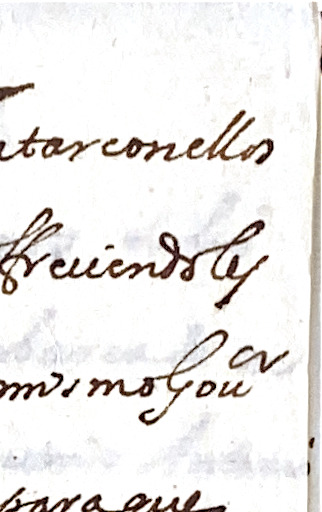 tarconellos
freciendoles
mismo Gou^or
paraque